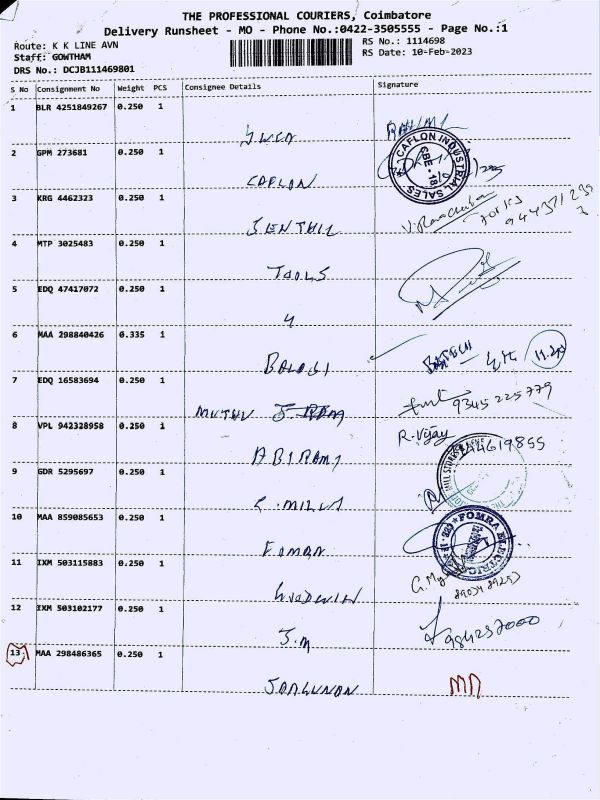 THE PROFESSIONAL COURIERS, Coimbatore
Delivery Runsheet - MO - Phone No.:0422-3505555 - Page No.:1
Route: K K LINE AVN
RS No.: 1114698
Staff: GOWTHAM
RS Date: 10-Feb-2023
DRS No.: DCJB111469801
S No Consignment No Weight PCS Consignee Details Signature
1 BLR 4251849267 0.250 1
2 GPM 273681 0.250 1
CAFLON INDUSTRIAL SALES
CAFLON
3 KRG 4462323 0.250 1
SENTHIL
4 MTP 3025483 0.250 1
TOOLS
5 EDQ 47417072 0.250 1
4
6 MAA 298840426 0.335 1
BALAJI
7 EDQ 16583694 0.250 1
9345225779
MUTHU
8 VPL 942328958 0.250 1
R. Vijay
ABIRAMI
9 GDR 5295697 0.250 1
10 MAA 859085653 0.250 1
FOMRA ELECTRIC
11 IXM 503115883 0.250 1
GOODWIN
12 IXM 503102177 0.250 1
J.M
13 MAA 298486365 0.250 1